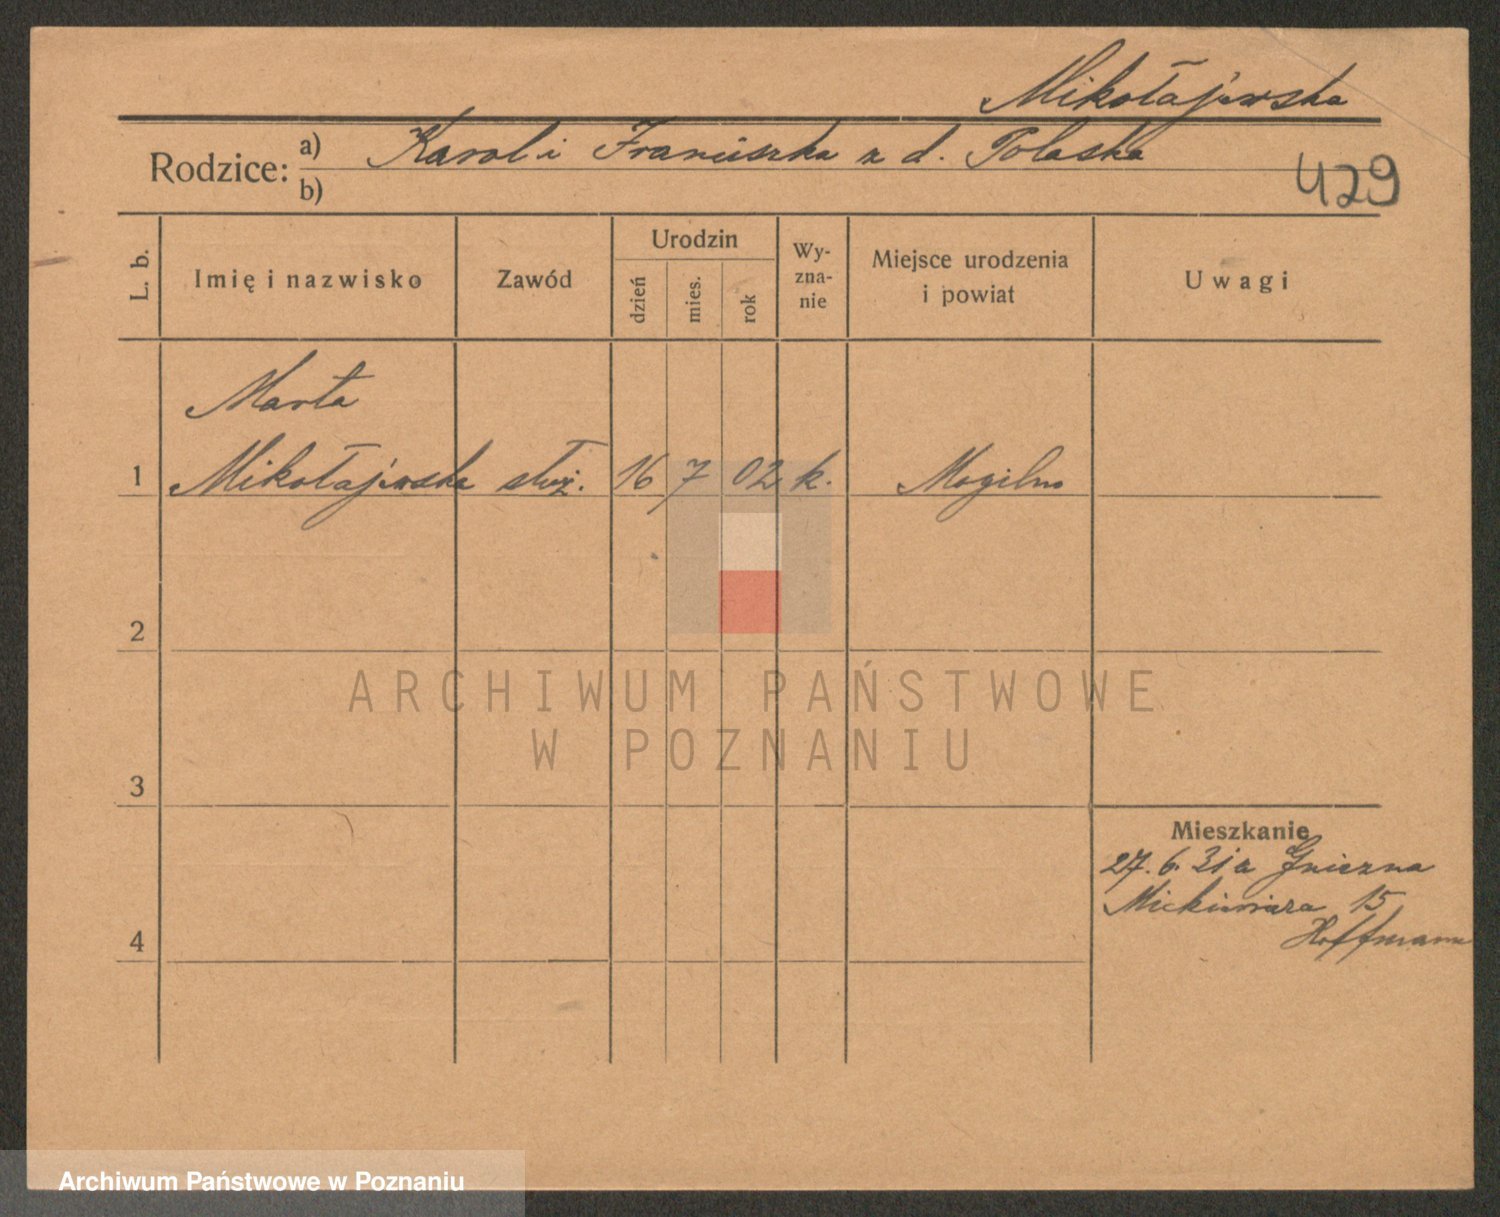 Mikołajewska
Rodzice: a) Karol i Franciszka z d. Polaska
b)
429
L. b. Imię i nazwisko Zawód Urodzin dzień mies. rok Wy-zna-nie Miejsce urodzenia i powiat Uwagi
Marta
1 Mikołajewska służ. 16 7 02 k. Mogilno
2
ARCHIWUM PAŃSTWOWE
W POZNANIU
3
Mieszkanie
27. 6. 31 z Gniezna
Mickiewicza 15
4
Hoffmann
Archiwum Państwowe w Poznaniu